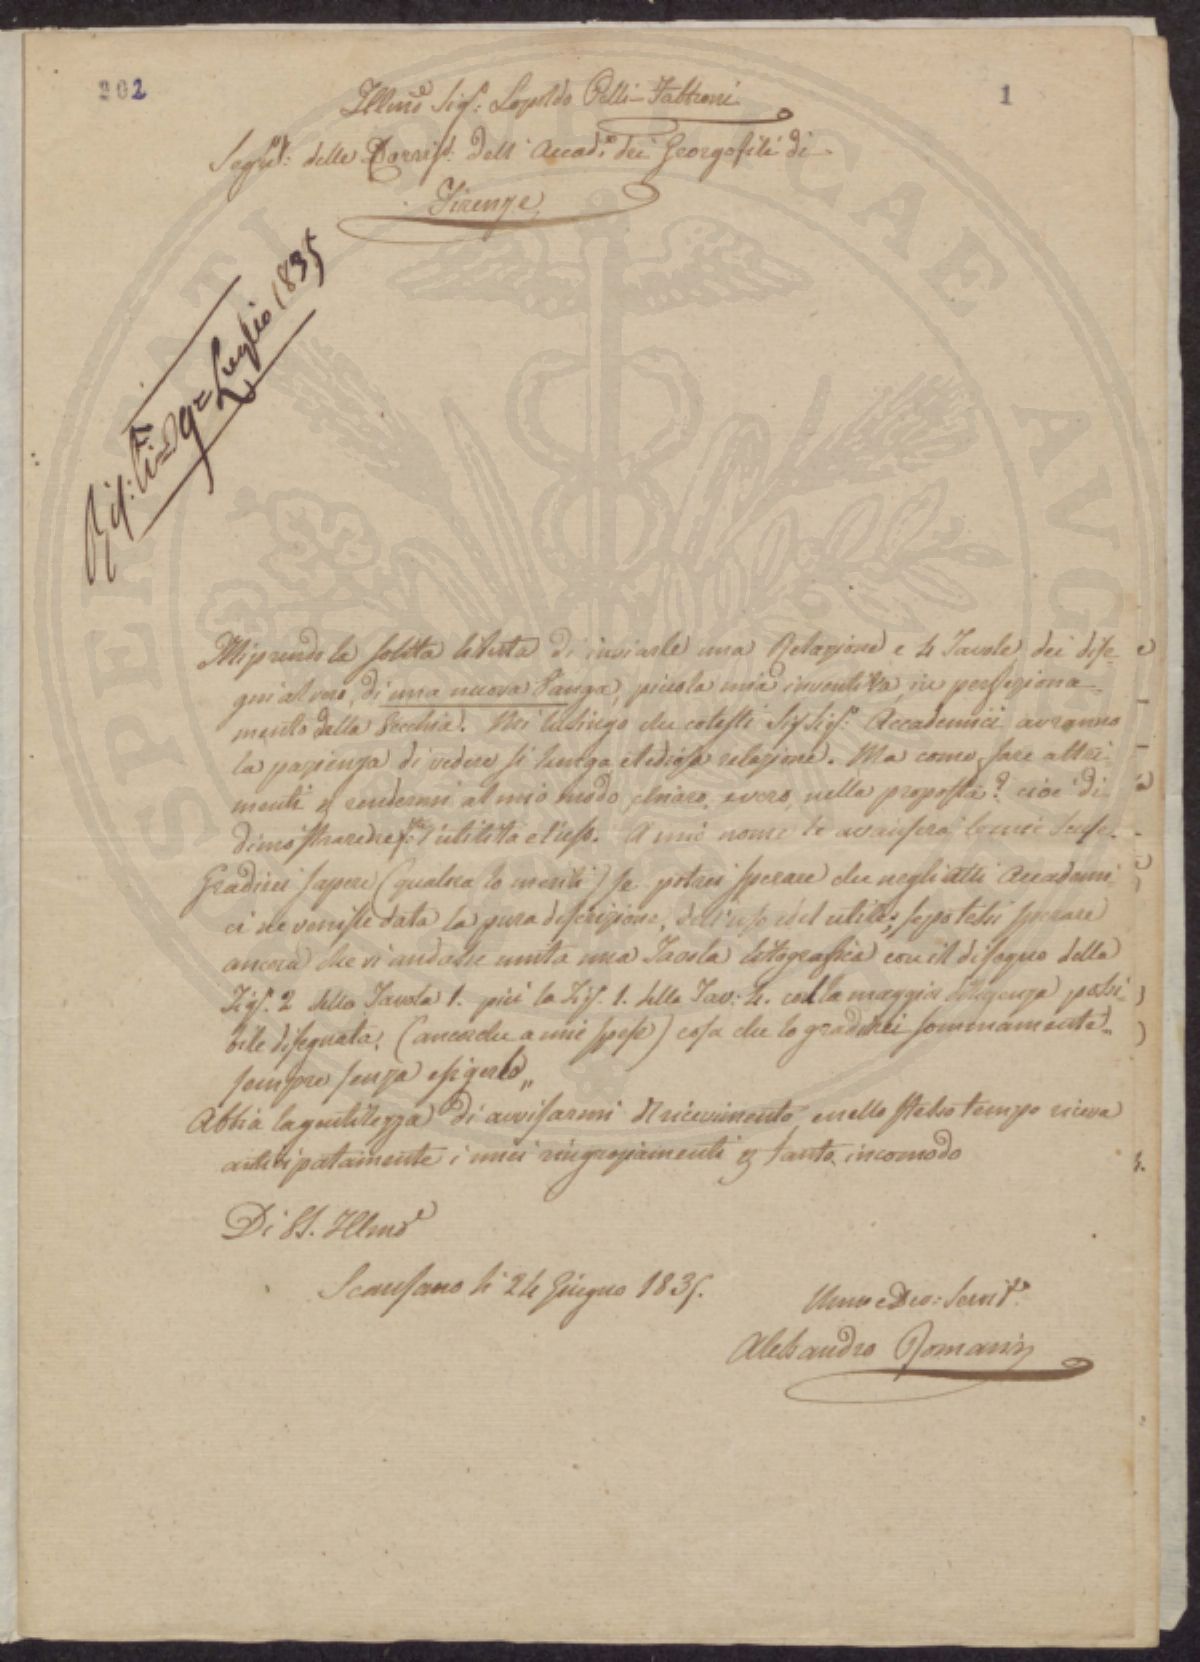 202
1
Illmo Sigr: Leopoldo Pelli-Fabbroni
Segret: delle Corrisp: dell' Accad: dei Georgofili di
Firenze
Risp: li 9 Luglio 1835
Mi prendo la solita libertà di inviarle una Relazione e 4 Tavole dei dise-
gni al vero, di una nuova Vanga, piccola mia inventiva in perfeziona-
mento della Vecchia. Mi lusingo che cotesti Sigg Sigri: Accademici avranno
la pazienza di vedere sì lunga e tediosa relazione. Ma come fare altri-
menti p rendermi al mio modo, chiaro, e vero, nella proposta? cioè di
dimostrare l'utilità e l'uso. A mio nome le mie scuse.
Gradirei sapere (qualora lo meriti) se potrei sperare che negli atti Accademi-
ci ne venisse data la pura descrizione, dell'uso e del utile; se potessi sperare
ancora che vi andasse unita una Tavola litografica con il disegno della
Fig. 2 della Tavola 1. più la Fig. 1. della Tav: 4. colla maggior diligenza possi-
bile disegnata, (ancorche a mie spese) cosa che lo gradirei sommamente
sempre senza esigerlo,,
Abbia la gentilezza di avvisarmi il ricevimento, e nello stesso tempo riceva
anticipatamente i miei ringraziamenti p tanto incomodo
Di VS. Illma
Scansano li 24 Giugno 1835.
Umo e Devo: Servit
Alessandro Romani